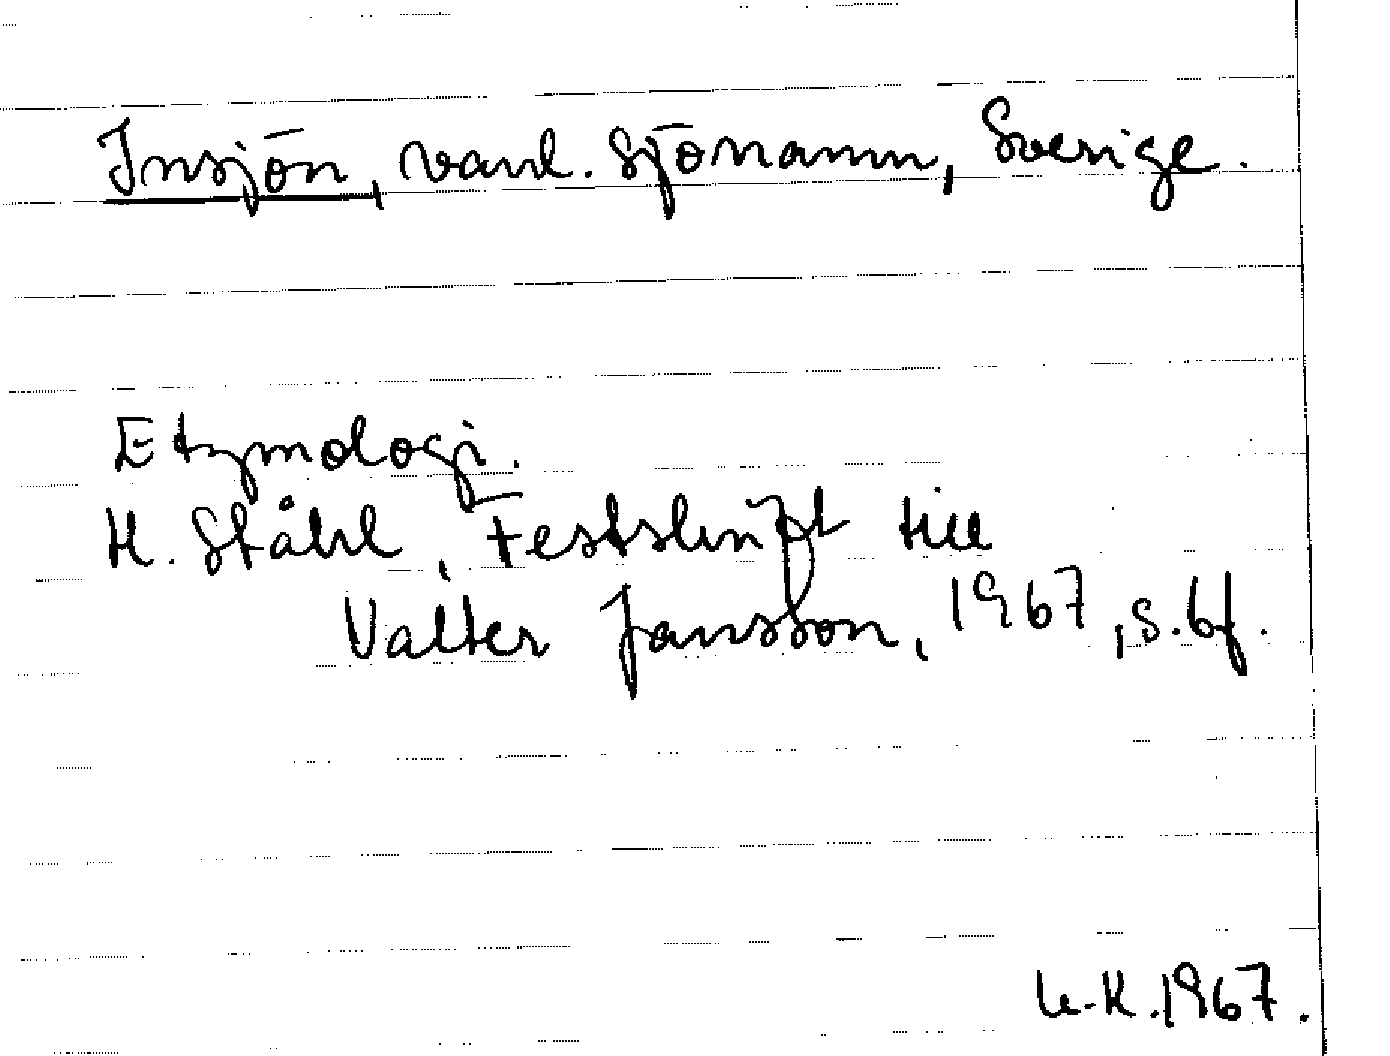 Insjön, vanl. sjönamn, Sverige.
Etymologi.
H. Ståhl, Festskrift till
Valter Jansson, 1967, s. 6f.
U-K. 1967.